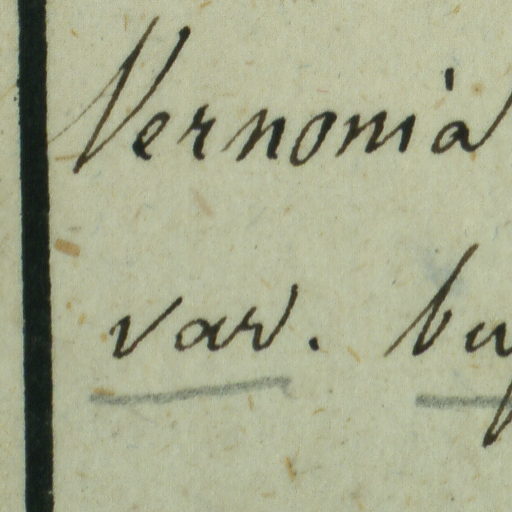 Vernonia
var.